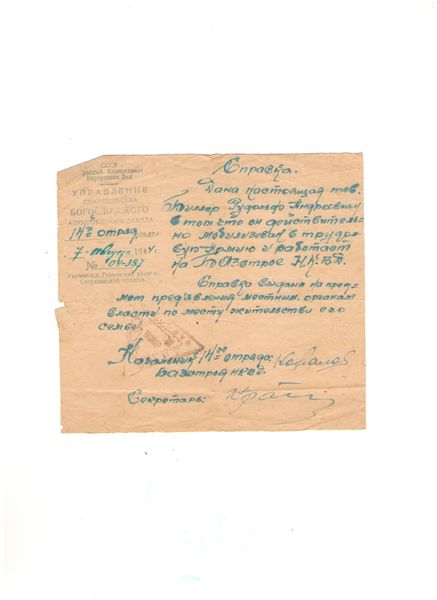 СССР
Народный Комиссариат
Внутренних Дел
УПРАВЛЕНИЕ
СТРОИТЕЛЬСТВА
БОГОСЛОВСКОГО
АЛЮМИНИЕВОГО ЗАВОДА
14й отряд
7 августа 1944г.
№
Свердловской области
Справка.
Дана настоящая тов.
Биллер Рудольфо Андреевичу
в том что он действитель-
но мобилизиван в трудо-
вую Армию и работает
на БАЗстрое Н.К.В.Д.
Справка выдана на пред-
мет пред'явления местным органам
власти по месту жительстви его
семьи
Начальник 14го отряда:
БАЗстроя НКВД.
Секретарь: